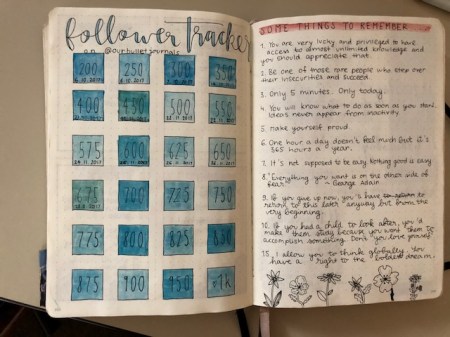 follower tracker
on @ourbulletjournals
200 250 300 350
6.11.2017
400 450 500 550
575 600 625 650
675 700 725 750
775 800 825 850
875 900 950 +1k
SOME THINGS TO REMEMBER
1. You are very lucky and privileged to have
access to almost unlimited knowledge and
you should appreciate that.
2. Be one of those rare people who step over
their insecurities and succeed.
3. Only 5 minutes. Only today.
4. You will know what to do as soon as you start.
Ideas never appear from inactivity
5. make yourself proud.
6. One hour a day doesn't feel much but it's
365 hours a year.
7. It's not supposed to be easy. Nothing good is easy
8. "Everything you want is on the other side of
fear" - George Adair
9. If you give up now, you'll have to
return to this later anyway but from the
very beginning.
10. If you had a child to look after, you'd
make them study because you want them to
accomplish something. Don't you love yourself?
I allow you to think globally. You
have a right to the boldest dream.